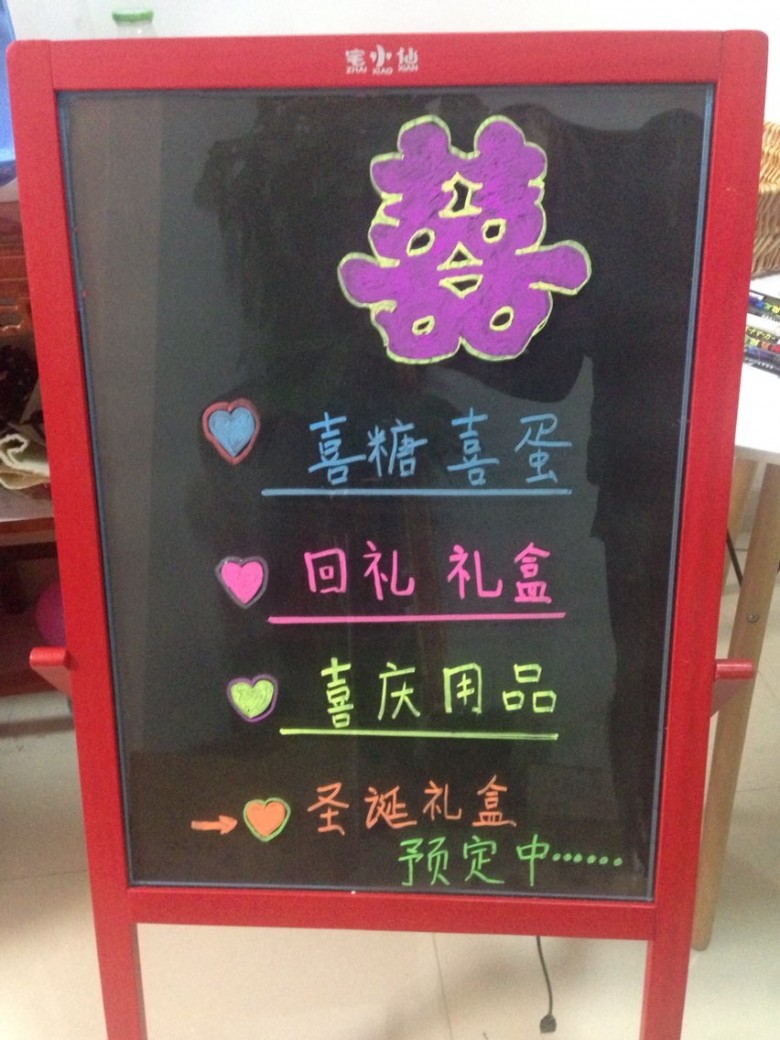 宅小仙
ZHAI XIAO XIAN
囍
喜糖 喜蛋
回礼 礼盒
喜庆用品
圣诞礼盒
预定中……